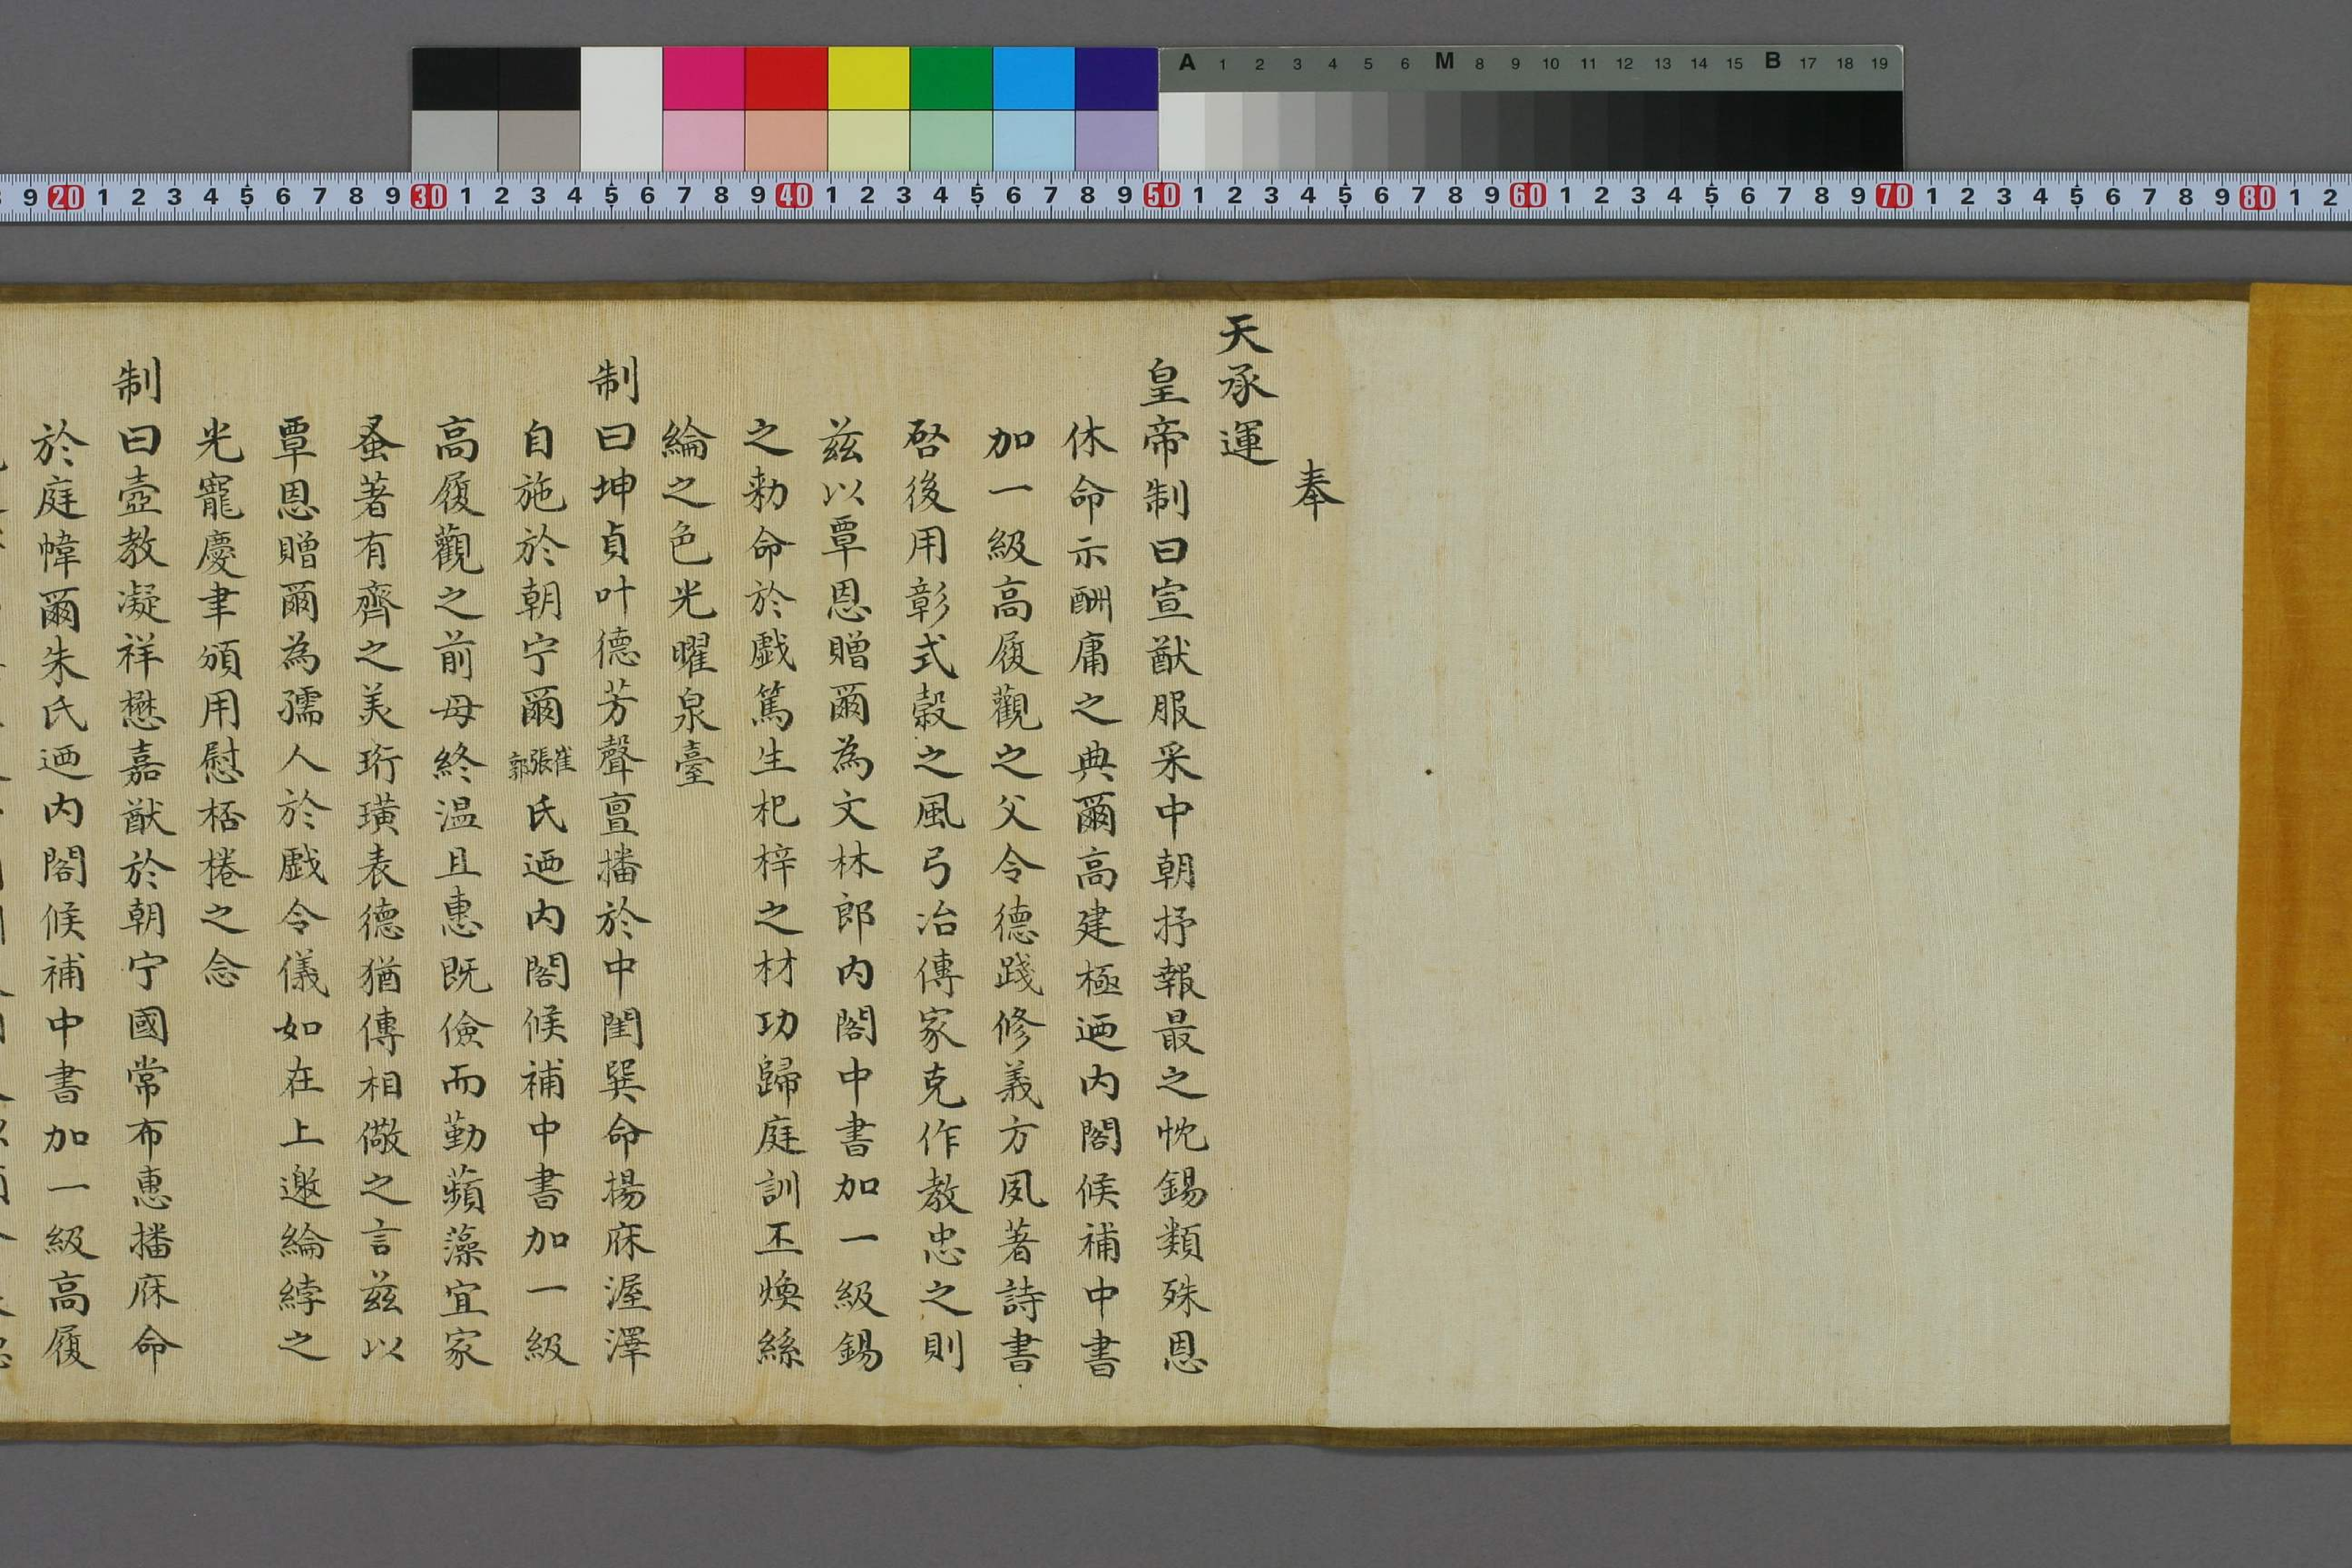 A 1 2 3 4 5 6 M 8 9 10 11 12 13 14 15 B 17 18 19
9 20 1 2 3 4 5 6 7 8 9 30 1 2 3 4 5 6 7 8 9 40 1 2 3 4 5 6 7 8 9 50 1 2 3 4 5 6 7 8 9 60 1 2 3 4 5 6 7 8 9 70 1 2 3 4 5 6 7 8 9 80 1 2
奉
天承運
皇帝制曰宣猷服采中朝抒報最之忱錫類殊恩
休命示酬庸之典爾高建極迺内閣候補中書
加一級高履觀之父令德踐修義方夙著詩書
啓後用彰式穀之風弓冶傳家克作教忠之則
兹以覃恩贈爾為文林郎内閣中書加一級錫
之勅命於戲篤生杞梓之材功歸庭訓丕煥絲
綸之色光曜泉臺
制曰坤貞叶德芳聲亶播於中閨巽命揚庥渥澤
自施於朝宁爾崔張郭氏迺内閣候補中書加一級
高履觀之前母終温且惠既儉而勤蘋藻宜家
蚤著有齊之美珩璜表德猶傳相儆之言兹以
覃恩贈爾為孺人於戲令儀如在上邀綸綍之
光寵慶聿頒用慰桮棬之念
制曰壼教凝祥懋嘉猷於朝宁國常布惠播庥命
於庭幃爾朱氏迺内閣候補中書加一級高履